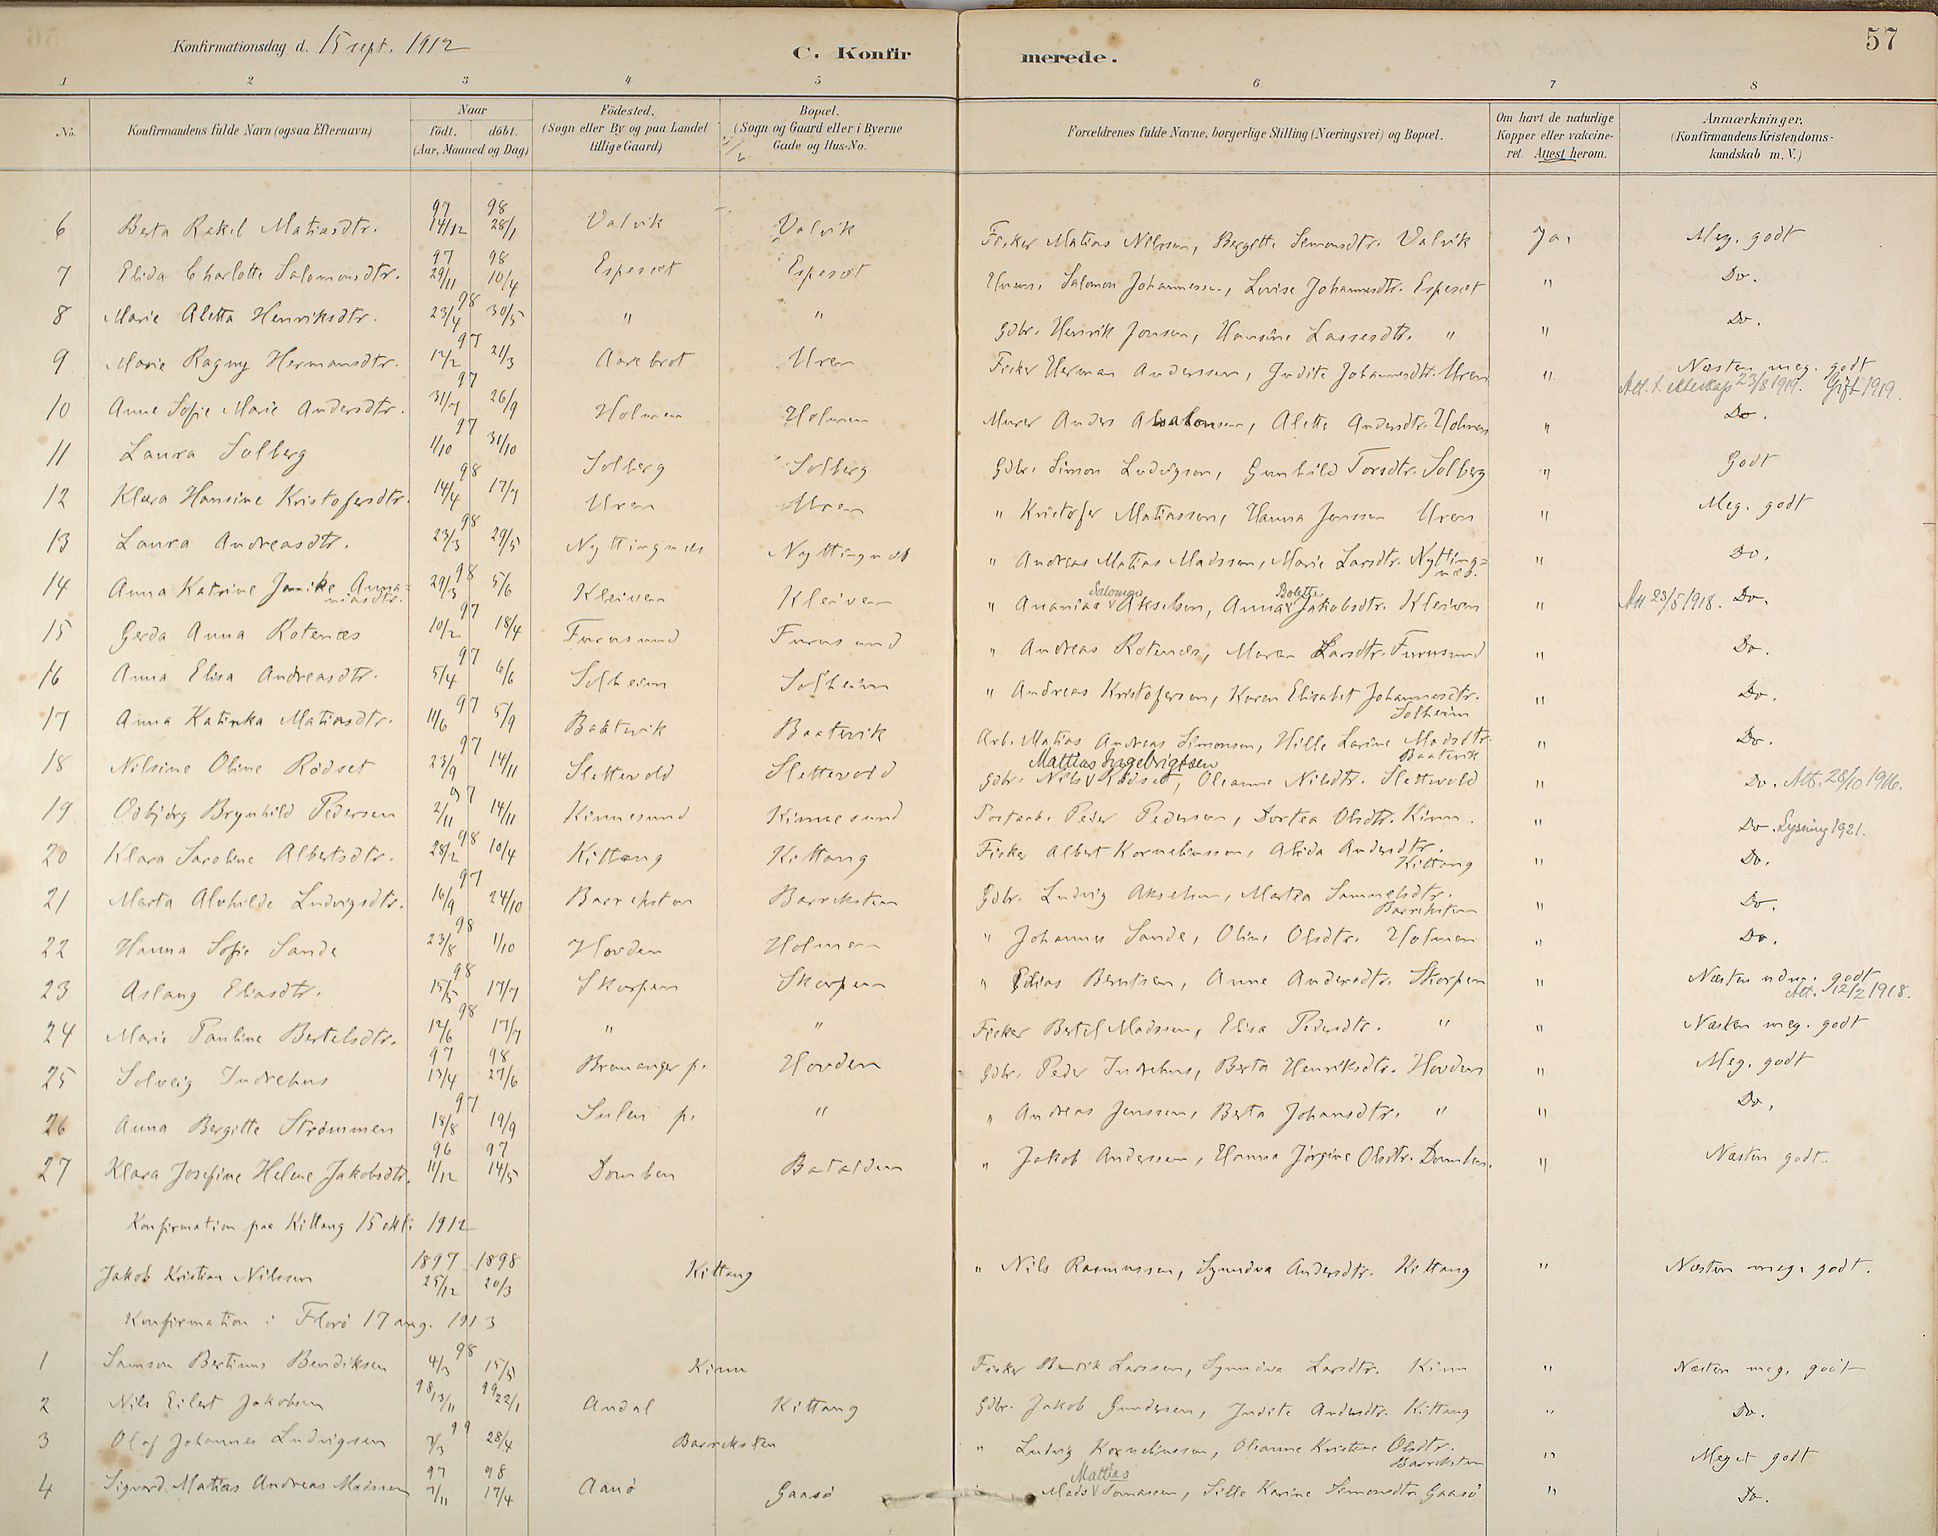 Konfirmationsdag d. 15 sept. 1912
C. Konfirmerede.
57
1 2 3 4 5 6 7 8
No.
Konfirmandens fulde Navn (ogsaa Efternavn)
Naar
födt. döbt.
(Aar, Maaned og Dag)
Födested.
(Sogn eller By og paa Landet
tillige Gaard)
Bopæl.
(Sogn og Gaard eller i Byerne
Gade og Hus-No.
Forældrenes fulde Navne, borgerlige Stilling (Næringsvei) og Bopæl.
Om havt de naturlige
Kopper eller vakcine-
ret. Attest herom.
Anmærkninger.
(Konfirmandens Kristendoms-
kundskab m. V.)
6 Berta Rakel Matiasdtr. 97 14/12 98 28/1 Valvik Valvik Fisker Matias Nilssen, Bergitte Simonsdtr. Valvik Ja, Meg. godt
7 Elida Charlotte Salomonsdtr. 97 29/11 98 10/4 Espeset Espeset Salomon Johannessen, Lovise Johannesdtr. Espeset " Do.
8 Marie Aletta Henriksdtr. 98 23/4 30/5 " " Gdbr. Henrik Jonsen, Hansine Lassesdtr. " " Do.
9 Marie Ragny Hermansdtr. 97 12/2 21/3 Aarebrot Uren Fisker Herman Anderssen, Judite Johannesdtr. Uren " Næsten meg. godt
Att. t. ekteskap 23/8 1919. Gift 1919.
10 Anne Sofie Marie Andersdtr. 97 31/7 26/9 Holmen Holmen Murer Anders Absalonsen, Alette Andersdtr. Holmen " Do.
11 Laura Solberg 97 1/10 31/10 Solberg Solberg Gdbr. Simon Ludvigsen, Gunhild Torsdtr. Solberg " Godt
12 Klara Hansine Kristofersdtr. 98 14/4 17/7 Uren Uren " Kristofer Matiassen, Hanna Jenssen Uren " Meg. godt
13 Laura Andreasdtr. 98 23/3 29/5 Nyttingnes Nyttingnes " Andreas Matias Madssen, Marie Larsdtr. Nytting=
nes. " Do.
14 Anna Katrine Jannike Anna=
niasdtr. 98 29/3 5/6 Kleiven Kleiven " Ananias Salomon Akselsen, Anna Bolette Jakobsdtr. Kleiven " Att 23/5 1918. Do.
15 Gerda Anna Rotenes 97 10/2 18/4 Furusund Furusund " Andreas Rotenes, Maren Larsdtr. Furusund " Do.
16 Anna Elisa Andreasdtr. 97 5/4 6/6 Solheim Solheim " Andreas Kristofersen, Karen Elisabet Johannesdtr.
Solheim " Do.
17 Anna Katinka Matiasdtr. 97 11/6 5/9 Baatevik Baatevik Arb. Matias Andreas Simonsen, Hille Karine Madsdtr.
Baatevik " Do.
18 Nilsine Oline Rödset 97 23/9 14/11 Slettevold Slettevold Gdbr. Nils Mattias Ingebrigtsen Rödset, Oleanne Nilsdtr. Slettevold " Do. Att. 28/10 1916.
19 Odbjörg Brynhild Pedersen 97 2/11 14/11 Kinnesund Kinnesund Peder Pedersen, Dortea Olsdtr. Kinn. " Do. Lysning 1921.
20 Klara Saroline Albertsdtr. 98 28/2 10/4 Kittang Kittang Fisker Albert Korneliussen, Alida Andersdtr.
Kittang " Do.
21 Marta Alvhilde Ludvigsdtr. 97 16/9 24/10 Barreksten Barreksten Gdbr. Ludvig Akselsen, Martea Samuelsdtr.
Barreksten " Do.
22 Hanna Sofie Sande 98 23/8 1/10 Hovden Holmen " Johannes Sande, Oline Olsdtr. Holmen " Do.
23 Aslaug Eliasdtr. 98 15/5 17/7 Skorpen Skorpen " Edias Berntsen, Anne Andersdtr. Skorpen " Næsten udm. godt
Att. 12/2 1918.
24 Marie Pauline Bertelsdtr. 98 12/6 17/7 " " Fisker Bertel Madssen, Elisa Pedersdtr. " " Næsten meg. godt
25 Solveig Indrehus 97 13/4 98 27/6 Bremanger p. Hovden Gdbr. Peder Indrehus, Berta Henriksdtr. Hovden " Meg. godt
26 Anna Bergitte Strömmen 97 18/8 19/9 Sulen p. " " Andreas Jenssen, Berta Johansdtr. " " Do.
27 Klara Josefine Helene Jakobsdtr. 96 11/12 97 14/5 Domben Batalden " Jakob Anderssen, Hanna Jörgine Olsdtr. Domben. " Næsten godt.
Konfirmation paa Kittang 15 okt. 1912
Jakob Kristian Nilssen 1897 25/12 1898 20/3 Kittang " Nils Rasmussen, Synnöva Andersdtr. Kittang " Næsten meg. godt.
Konfirmation i Florö 17 aug. 1913
1 Samson Bertinus Bendiksen 98 4/3 15/5 Kinn Fisker Bendik Larssen, Synnöva Larsdtr. Kinn " Næsten meg. godt
2 Nils Eilert Jakobsen 98 13/11 99 22/1 Andal Kittang Gdbr. Jakob Gundersen, Judite Andersdtr. Kittang " Do.
3 Olaf Johannes Ludvigsen 99 7/3 28/4 Barreksten " Ludvig Korneliussen, Oleanne Kristine Olsdtr.
Barreksten " Meget godt
4 Sigvard Matias Andreas Madssen 97 7/11 98 17/4 Aanö Gaasö Mads Mattias Tomassen, Sille Karine Simonsdtr. Gaasö " Do.